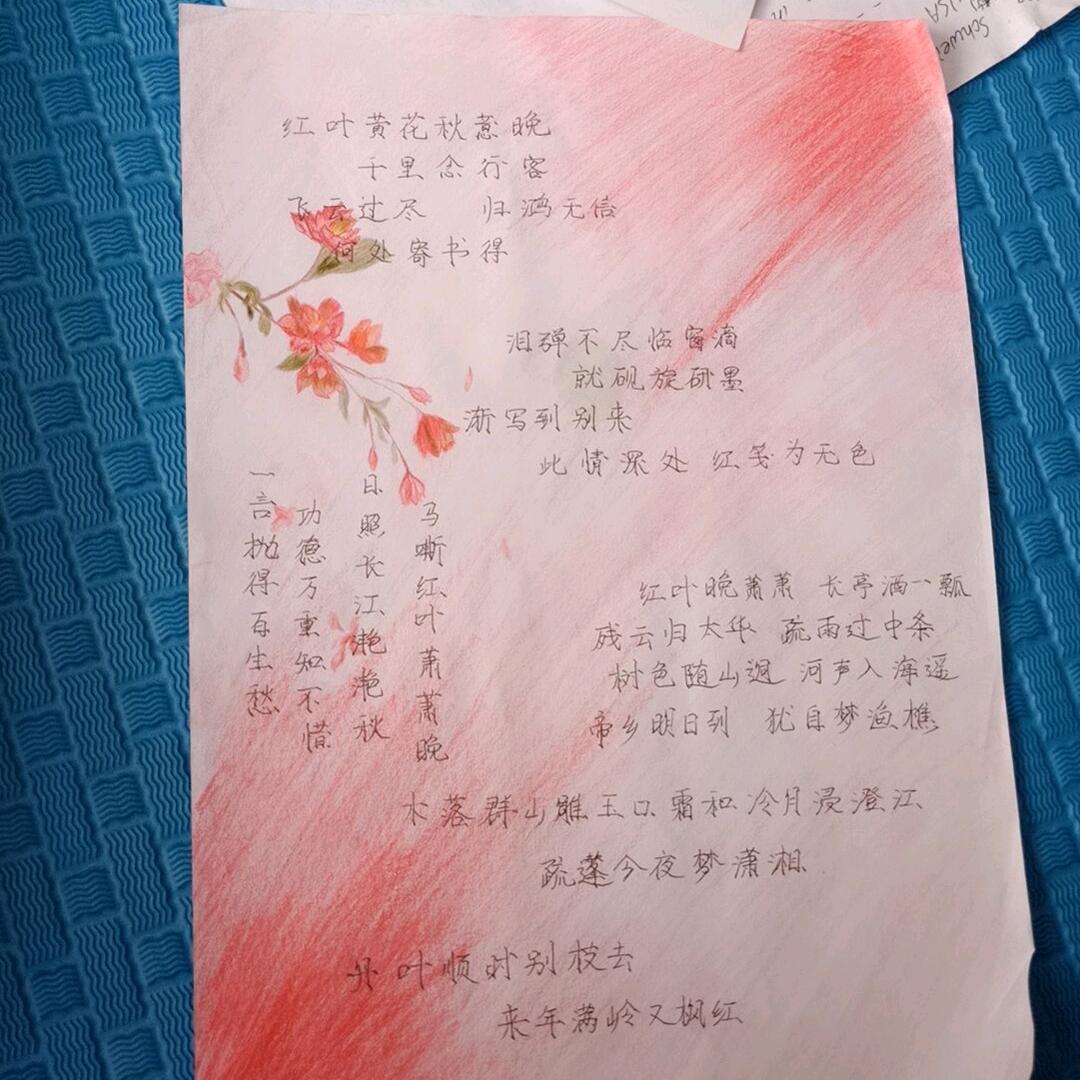 红叶黄花秋意晚
千里念行客
飞云过尽 归鸿无信
何处寄书得
泪弹不尽临窗滴
就砚旋研墨
渐写到别来
此情深处 红笺为无色
马嘶红叶萧萧晚
日照长江滟滟秋
功德万重知不惜
一言抛得百生愁
红叶晚萧萧 长亭酒一瓢
残云归太华 疏雨过中条
树色随山迥 河声入海遥
帝乡明日到 犹自梦渔樵
木落群山雕玉口 霜和冷月浸澄江
疏蓬今夜梦潇湘
丹叶顺时别枝去
来年满岭又枫红
Schwei
USA